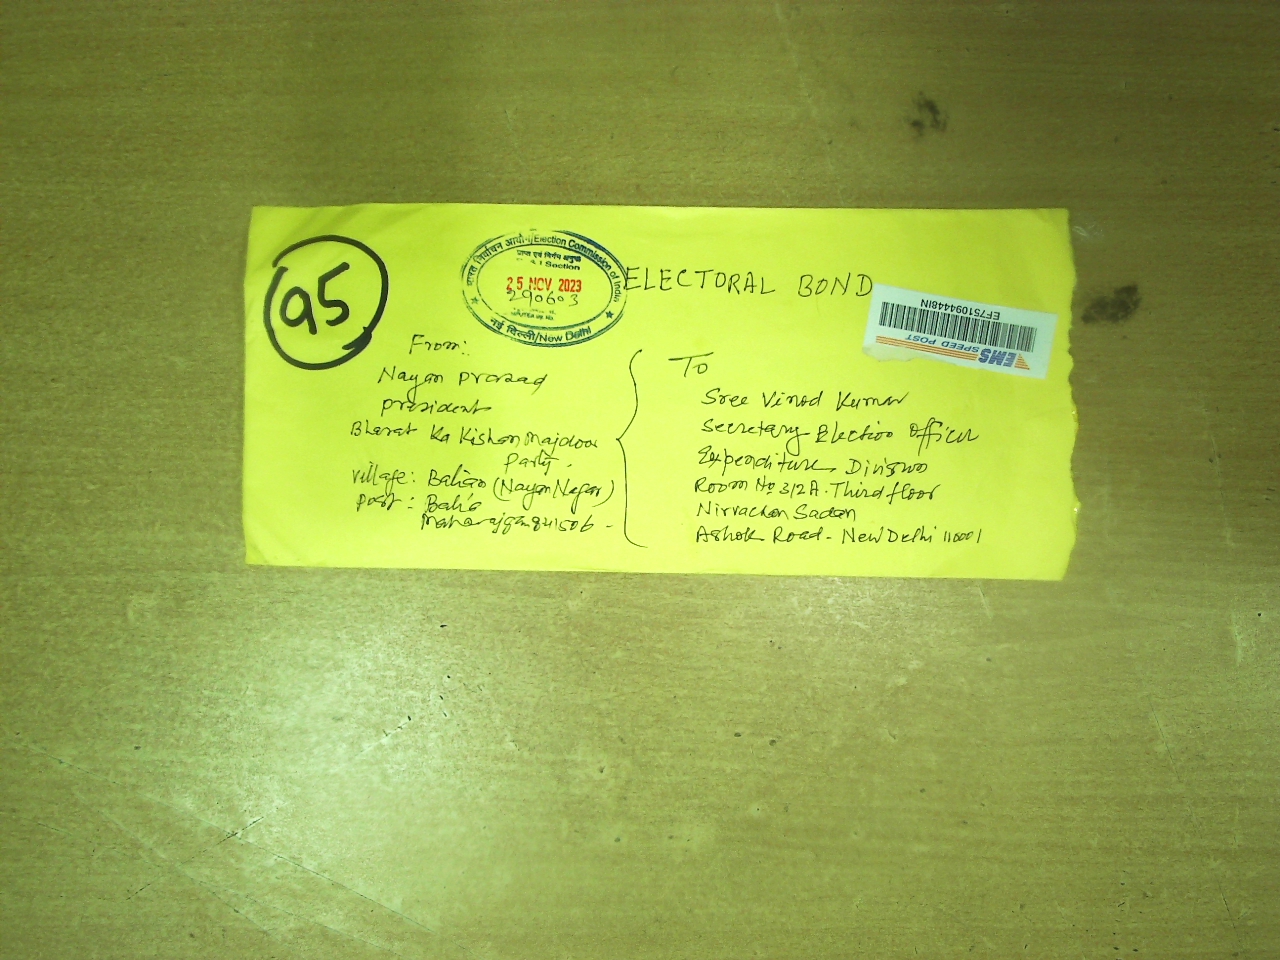 95
भारत निर्वाचन आयोग/Election Commission of India
प्राप्त एवं निर्गम अनुभाग
& I Section
25 NOV 2023
290603
नई दिल्ली/New Delhi
ELECTORAL BOND
EF751094448IN
EMS SPEED POST
From:
Nayan Prasad
President
Bharat Ka Kishan Majdoor
Party.
Village: (Nayan Nagar)
Post:
Maharajganj 841506
To
Sree Vinod Kumar
Secretary Election Officer
Expenditure Division
Room No 312A. Third floor
Nirvachan Sadan
Ashok Road - New Delhi 110001